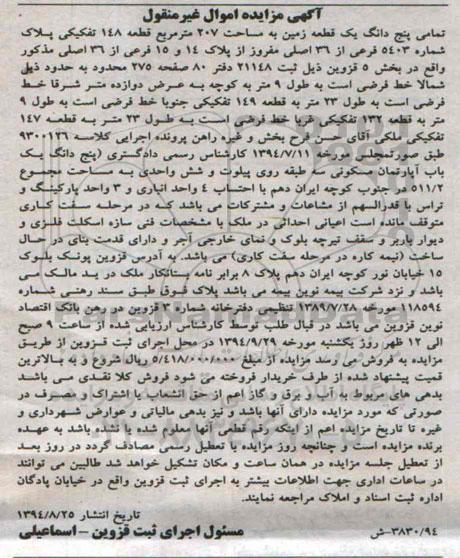 آگهی مزایده اموال غیرمنقول
تمامی پنج دانگ یک قطعه زمین به مساحت ۲۰۷ مترمربع قطعه ۱۴۸ تفکیکی پلاک
شماره ۵۴۰۳ فرعی از ۳۶ اصلی مفروز از پلاک ۱۴ و ۱۵ فرعی از ۳۶ اصلی مذکور
واقع در بخش ۵ قزوین ذیل ثبت ۲۱۱۴۸ دفتر ۸۰ صفحه ۲۷۵ محدود به حدود ذیل
شمالا خط فرضی است به طول ۹ متر به کوچه به عرض دوازده متر شرقا خط
فرضی است به طول ۲۳ متر به قطعه ۱۴۹ تفکیکی جنوبا خط فرضی است به طول ۹
متر به قطعه ۱۳۲ تفکیکی غربا خط فرضی است به طول ۲۳ متر به قطعه ۱۴۷
تفکیکی ملکی آقای حسن فرح بخش و غیره راهن پرونده اجرایی کلاسه ۹۳۰۰۱۲۶
طبق صورتمجلس مورخه ۱۳۹۴/۷/۱۱ کارشناس رسمی دادگستری (پنج دانگ یک
باب آپارتمان مسکونی سه طبقه روی پیلوت و شش واحدی به مساحت مجموع
۵۱۱/۲ در جنوب کوچه ایران دهم با احتساب ۴ واحد انباری و ۳ واحد پارکینگ و
تراس با قدرالسهم از مشاعات و مشترکات می باشد که در مرحله سفت کاری
متوقف مانده است اعیانی احداثی در ملک با مشخصات فنی سازه اسکلت فلزی و
دیوار باربر و سقف تیرچه بلوک و نمای خارجی آجر و دارای قدمت بنای در حال
ساخت (نیمه کاره در مرحله سفت کاری) می باشد. به آدرس قزوین پونک بلوک
۱۵ خیابان نور کوچه ایران دهم پلاک ۸ برابر نامه بستانکار ملک در ید مالک می
باشد و نزد شرکت بیمه نوین بیمه می باشد پلاک فوق طبق سند رهنی شماره
۱۱۸۵۹۴ مورخه ۱۳۸۹/۷/۲۸ تنظیمی دفترخانه شماره ۳ قزوین در رهن بانک اقتصاد
نوین قزوین می باشد در قبال طلب توسط کارشناس ارزیابی شده از ساعت ۹ صبح
الی ۱۲ ظهر روز یکشنبه مورخه ۱۳۹۴/۹/۲۹ در محل اجرای ثبت قزوین از طریق
مزایده به فروش می رسد مزایده از مبلغ ۵/۴۱۸/۰۰۰/۰۰۰ ریال شروع و به بالاترین
قمیت پیشنهاد شده از طرف خریدار فروخته می شود فروش کلا نقدی می باشد
بدهی های مربوط به آب و برق و گاز اعم از حق انشعاب یا اشتراک و مصرف در
صورتی که مورد مزایده دارای آنها باشد و نیز بدهی مالیاتی و عوارض شهرداری و
غیره تا تاریخ مزایده اعم از اینکه رقم قطعی آنها معلوم شده یا نشده باشد به عهده
برنده مزایده است و چنانچه روز مزایده با تعطیل رسمی مصادف گردد در روز بعد
از تعطیل جلسه مزایده در همان ساعت و مکان تشکیل خواهد شد طالبین می توانند
در ساعات اداری جهت اطلاعات بیشتر به اجرای ثبت قزوین واقع در خیابان پادگان
اداره ثبت اسناد و املاک مراجعه نمایند.
تاریخ انتشار ۱۳۹۴/۸/۲۵
۳۸۳۰/۹۴-ش مسئول اجرای ثبت قزوین - اسماعیلی